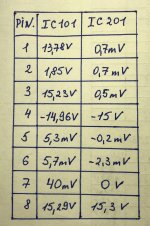 PiN. IC101 IC201
1 13,78V 0,7mV
2 1,85V 0,7mV
3 15,23V 0,5mV
4 -14,96V -15V
5 5,3mV -0,2mV
6 5,7mV -2,3mV
7 40mV 0V
8 15,29V 15,3V